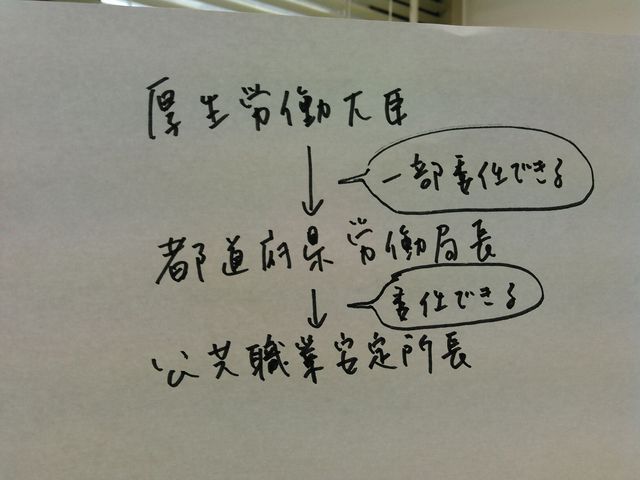 厚生労働大臣
一部委任できる
都道府県労働局長
委任できる
公共職業安定所長